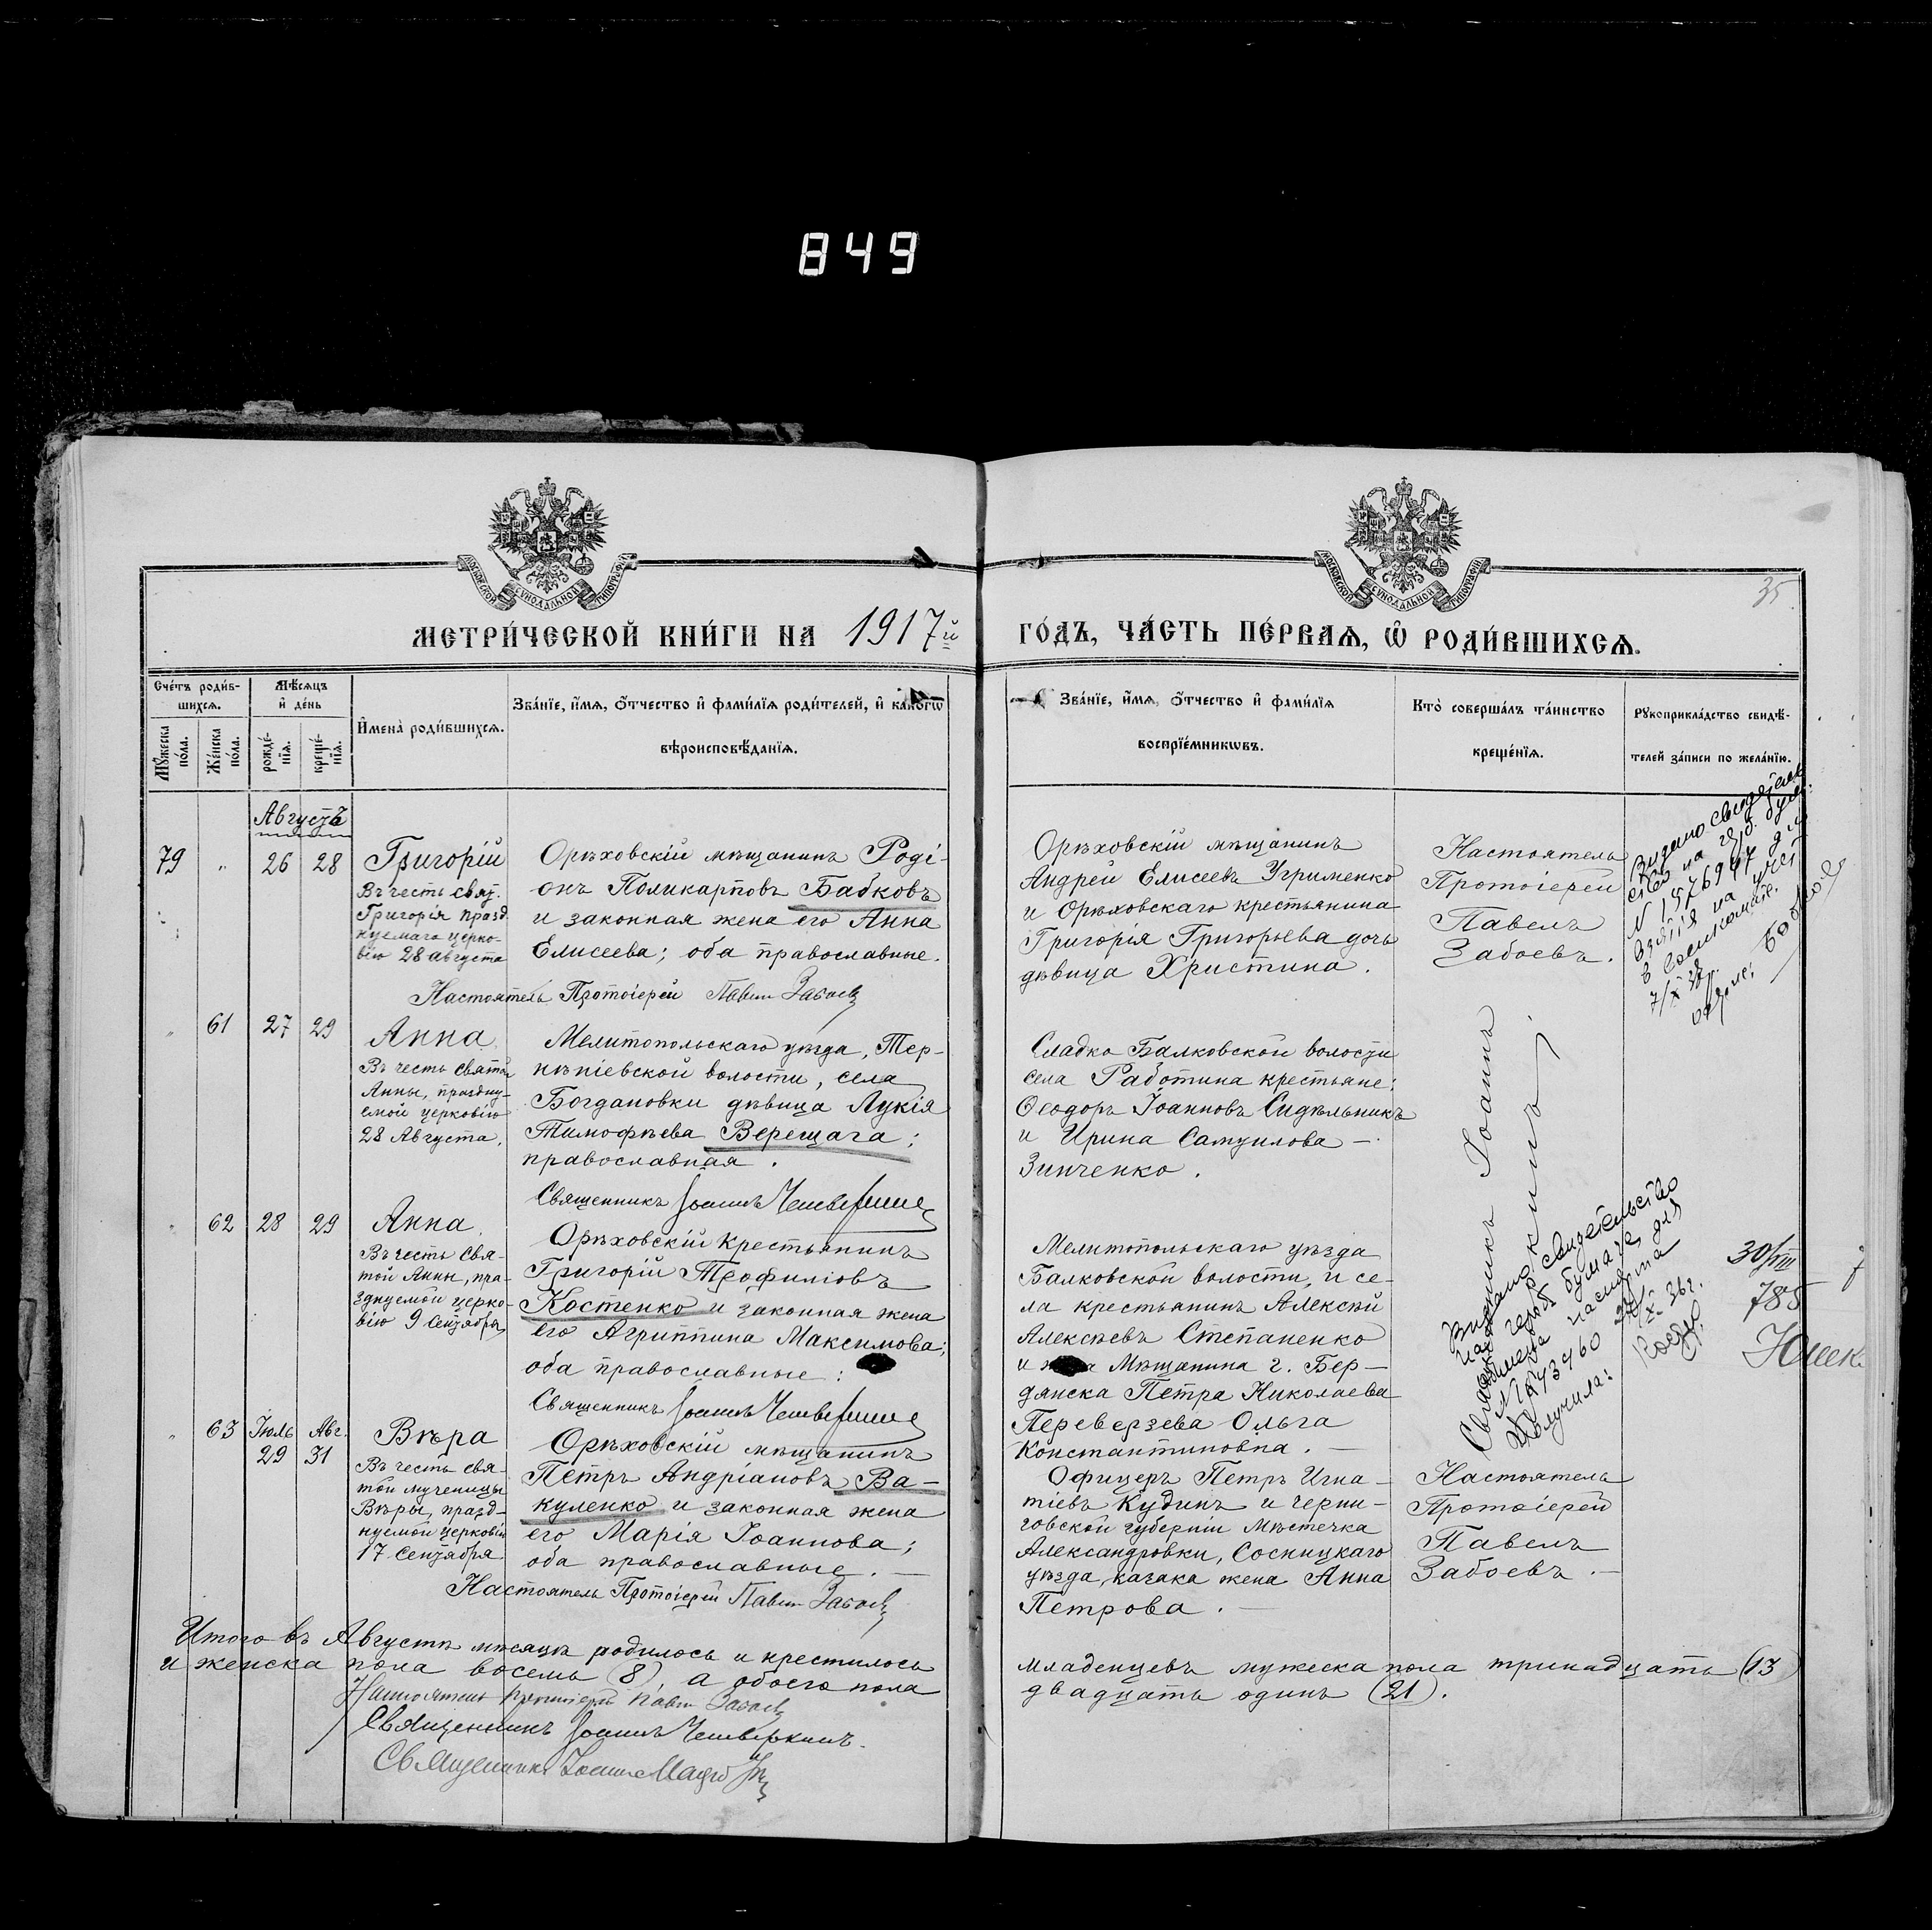 849
МОСКОВСКОЙ СѴНОДАЛЬНОЙ ТИПОГРАФІИ
МОСКОВСКОЙ СѴНОДАЛЬНОЙ ТИПОГРАФІИ
35.
МЕТРИ́ЧЕСКОЙ КНИ́ГИ НА 1917й
ГО́ДЪ, ЧА́СТЬ ПЕ́РВАѦ, Ѿ РОДИ́ВШИХСѦ.
Сче́тъ роди́в-
шихсѧ.
Мꙋ́жеска по́ла.
Же́нска по́ла.
Мѣ́сѧцъ
и҆ де́нь
рожде́-
нїѧ.
креще́-
нїѧ.
И҆мена̀ роди́вшихсѧ.
Зва́нїе, и҆́мѧ, ѻ҆́тчество и҆ фами́лїѧ роди́телей, и҆ како́гѡ
вѣроисповѣ́данїѧ.
Зва́нїе, и҆́мѧ, ѻ҆́тчество и҆ фами́лїѧ
воспрїе́мникѡвъ.
Кто̀ соверша́лъ та́инство
креще́нїѧ.
Рꙋкоприкла́дство свидѣ́-
телей за́писи по жела́нїю.
Августъ
79 " 26 28
Григорій
Въ честь свят.
Григорія празд-
нуемаго церко-
вію 28 августа
Орѣховскій мѣщанинъ Роді-
онъ Поликарповъ Бабковъ
и законная жена его Анна
Елисеева; оба православные.
Настоятель Протоіерей Павелъ Забоевъ
Орѣховскій мѣщанинъ
Андрей Елисеевъ Угрименко
и Орѣховскаго крестьянина
Григорія Григорьева дочь
дѣвица Христина.
Настоятель
Протоіерей
Павелъ
Забоевъ.
N 1576947
" 61 27 29
Анна
Въ честь святой
Анны, праздну-
емой церковію
28 Августа.
Мелитопольскаго уѣзда, Тер-
пѣніевской волости, села
Богдановки дѣвица Лукія
Тимофѣева Верещага;
православная.
Священникъ Іоаннъ Чешверкинъ
Сладко Балковской волости
села Работина крестьяне:
Ѳеодоръ Іоанновъ Сидѣльникъ
и Ирина Самуилова —
Зинченко.
" 62 28 29
Анна
Въ честь свя-
той Анны, пра-
зднуемой церко-
вію 9 Сентября
Орѣховскій крестьянинъ
Григорій Трофиміовъ
Костенко и законная жена
его Агриппина Максимова;
оба православные:
Священникъ Іоаннъ Чешверкинъ
Мелитопольскаго уѣзда
Балковской волости, и се-
ла крестьянинъ Алексѣй
Алексѣевъ Степаненко
и Мѣщанина г. Бер-
дянска Петра Николаева
Переверзева Ольга
Константиновна. —
Выдано свидетельство
на герб бумаге для
обмена паспорта
Получила:
30/VIII
785
" 63 Іюль Авг.
29 31
Вѣра
Въ честь свя-
той мученицы
Вѣры, празд-
нуемой церковію
17 Сентября
Орѣховскій мѣщанинъ
Петръ Андріановъ Ва-
куленко и законная жена
его Марія Іоаннова;
оба православные. —
Настоятель Протоіерей Павелъ Забоевъ
Офицеръ Петръ Игна-
тіевъ Кудинъ и черни-
говской губерніи Мѣстечка
Александровки, Сосницкаго
уѣзда, казака жена Анна
Петрова. —
Настоятель
Протоіерей
Павелъ
Забоевъ. —
Итого въ Августѣ мѣсяцѣ родилось и крестилось младенцевъ мужеска пола тринадцать (13
и женска пола восемь (8), а обоего пола двадцать одинъ (21).
Настоятель Протоіерей Павелъ Забоевъ
Священникъ Іоаннъ Чешверкинъ.
Священникъ Іоаннъ